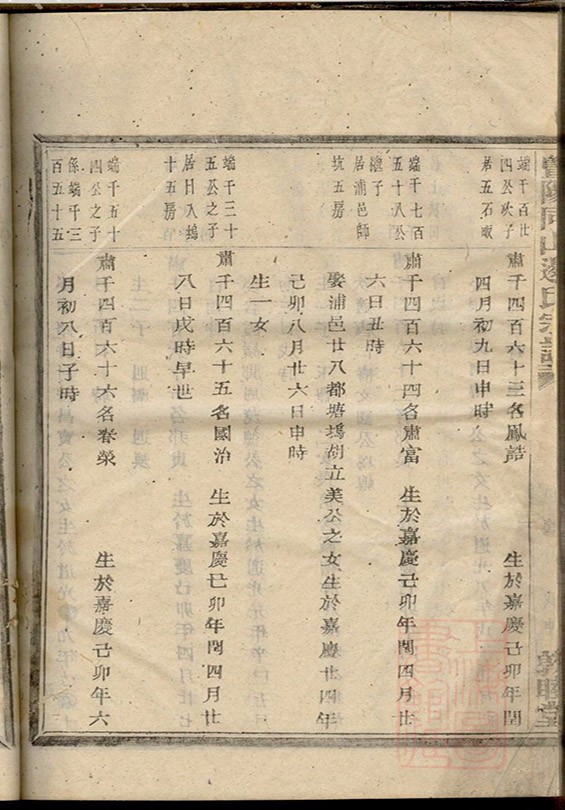 暨陽同山邊氏宗譜
敦睦堂
端千百廿
四公次子
居五石畈
肅千四百六十三名鳳誥 生於嘉慶己卯年閏
四月初九日申時
端千七百
五十八公
繼子
居浦邑師
坑五房
肅千四百六十四名肅富 生於嘉慶己卯年閏四月廿
六日丑時
娶浦邑廿八都塘塢胡立美公之女生於嘉慶廿四年
己卯八月廿六日申時
生一女
端千三十
五公之子
居日入塢
十五房
肅千四百六十五名國治 生於嘉慶己卯年閏四月廿
八日戌時早世
端千五十
四公之子
係端千三
百五十五
肅千四百六十六名春榮 生於嘉慶己卯年六
月初八日子時